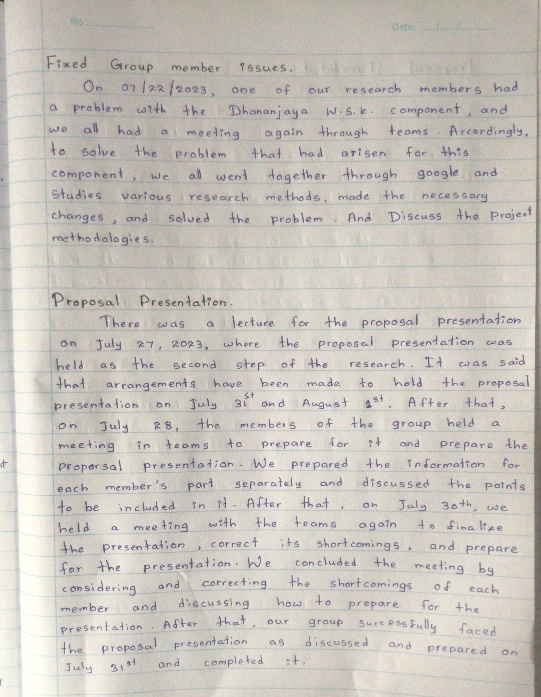 No
Date:
Fixed Group member issues.
On 07/22/2023, one of our research members had
a problem with the Dhananjaya W.S.K. component, and
we all had a meeting again through teams. Accordingly,
to solve the problem that had arisen for this
component, we all went together through google and
studies various research methods, made the necessary
changes, and solved the problem. And Discuss the Project
methodologies.
Proposal Presentation.
There was a lecture for the proposal presentation
on July 27, 2023, where the proposal presentation was
held as the second step of the research. It was said
that arrangements have been made to hold the proposal
presentation on July 31st and August 1st. After that,
on July 28, the members of the group held a
meeting in teams to prepare for it and prepare the
proporsal presentation. We prepared the information for
each member's part separately and discussed the points
to be included in it. After that, on July 30th, we
held a meeting with the teams again to finalize
the presentation, correct its shortcomings, and prepare
for the presentation. We concluded the meeting by
considering and correcting the shortcomings of each
member and discussing how to prepare for the
presentation. After that, our group successfully faced
the proposal presentation as discussed and prepared on
July 31st and completed it.